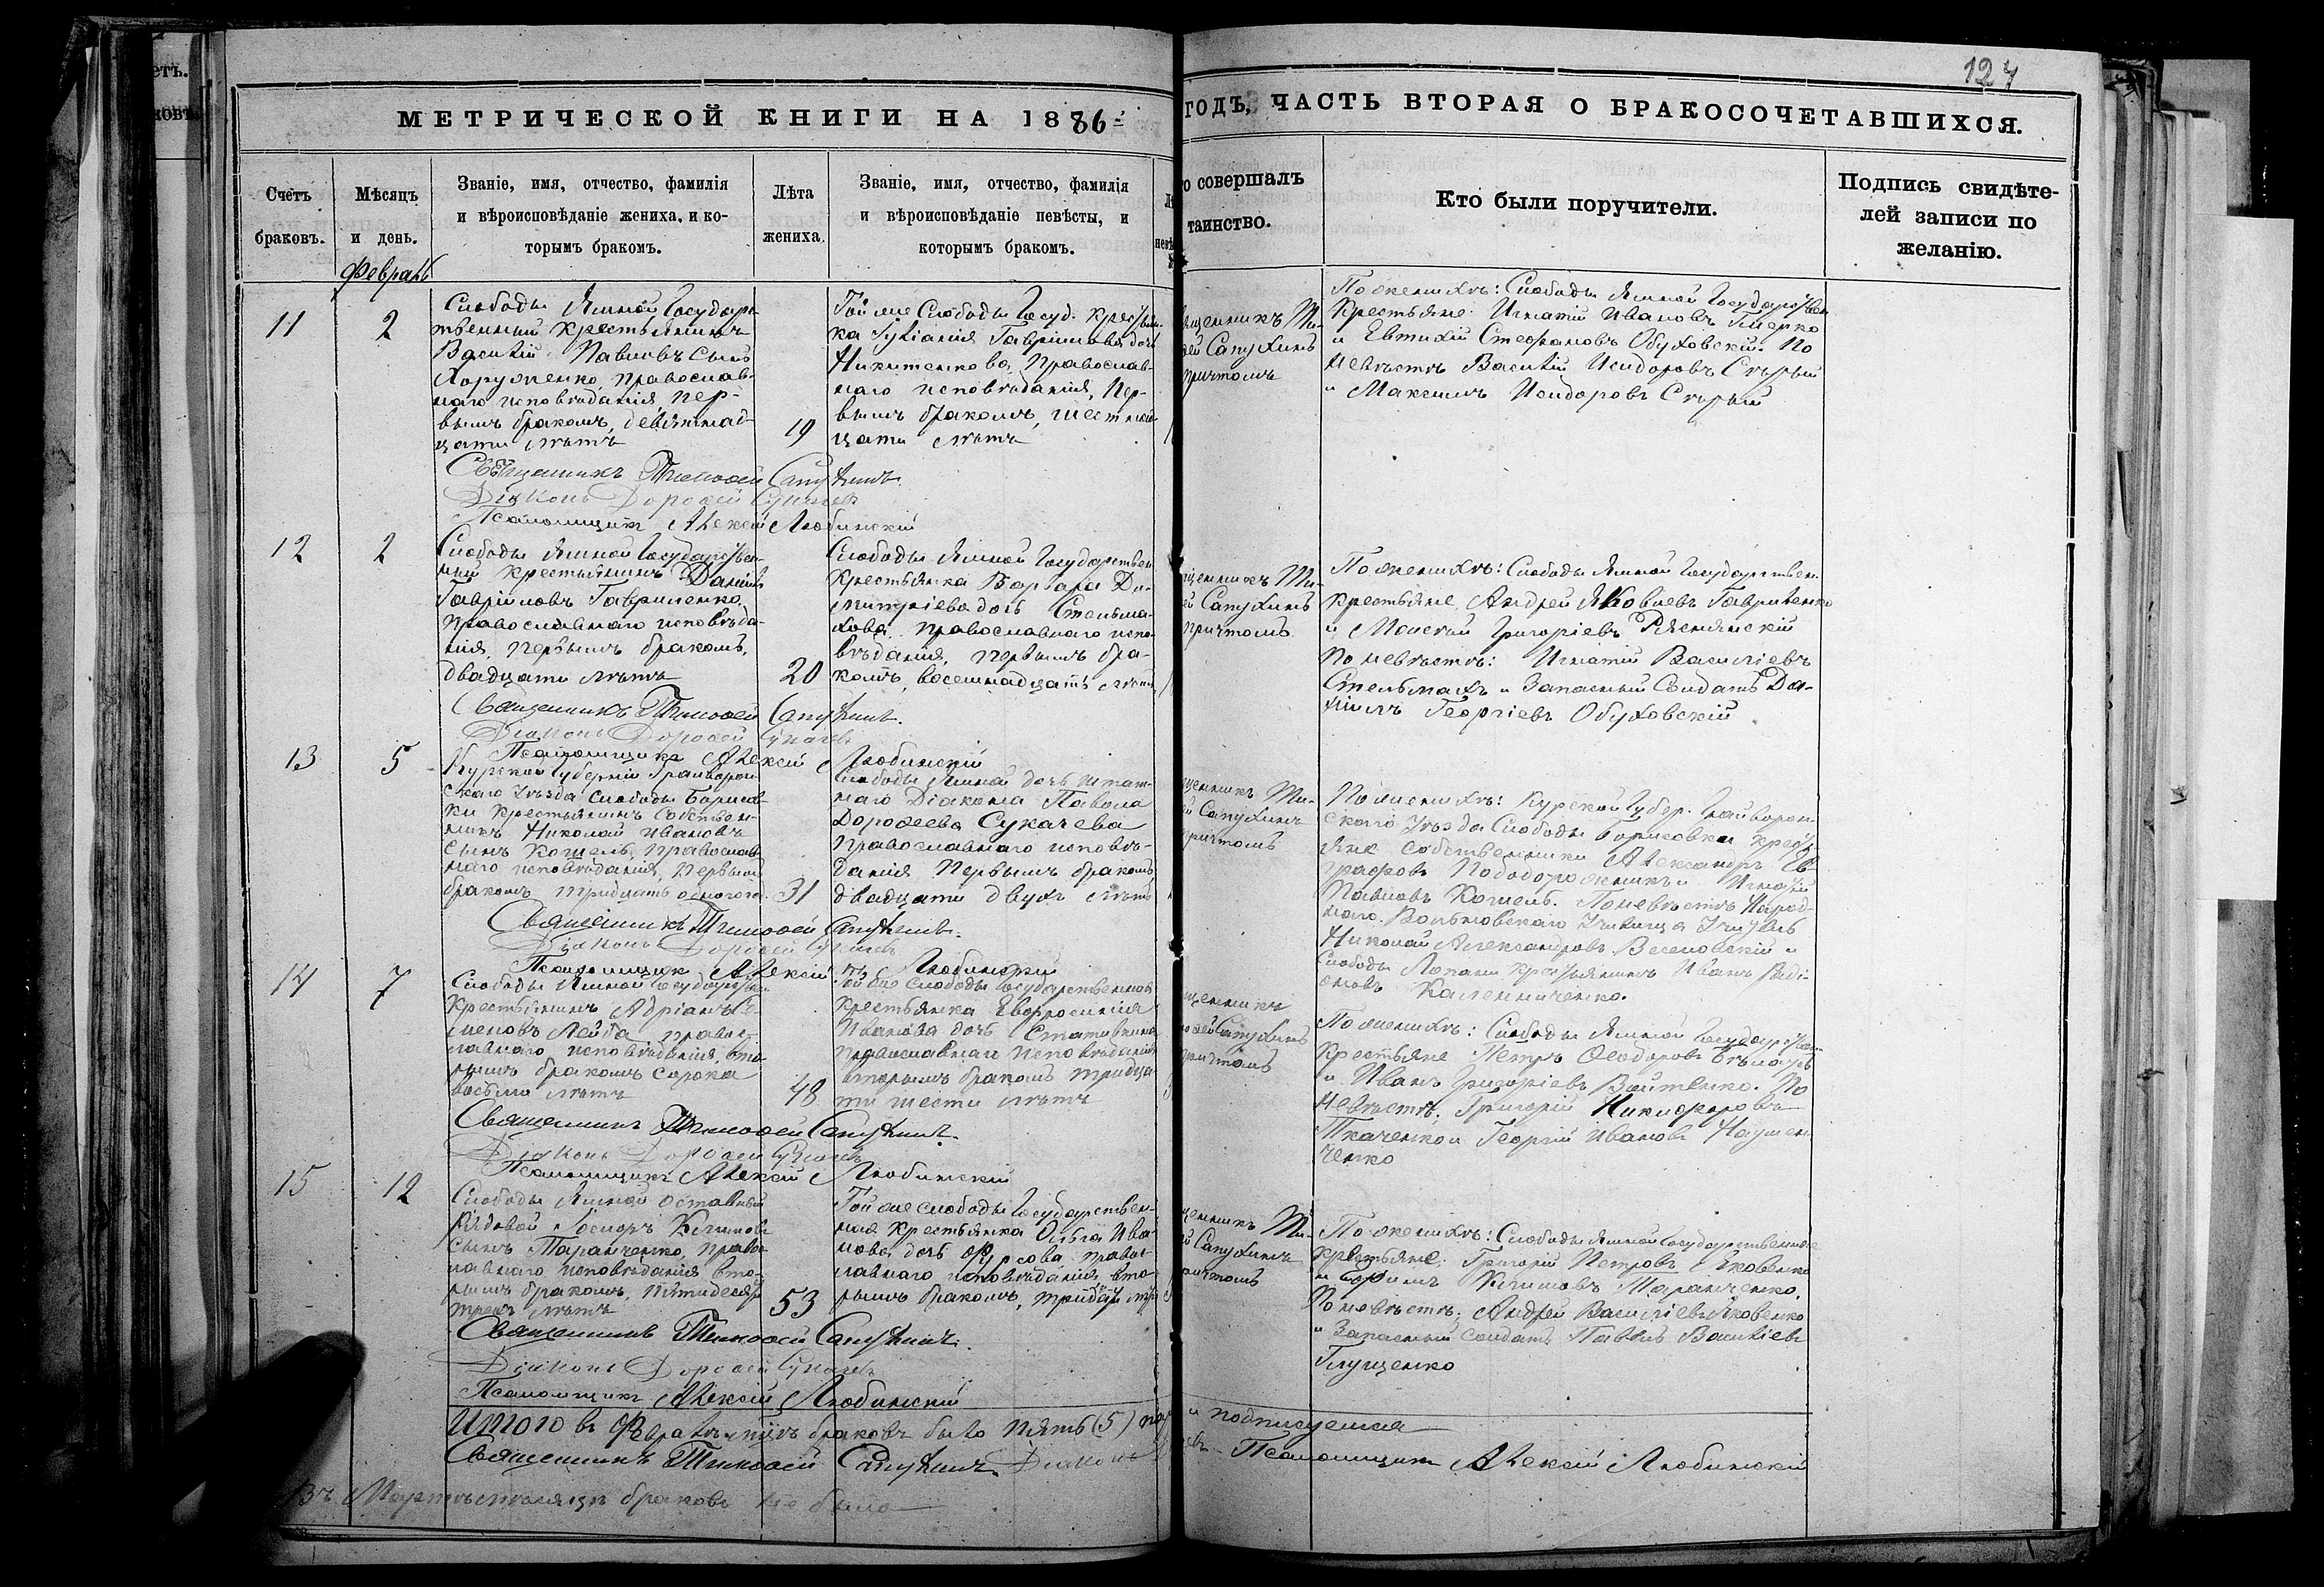 127
МЕТРИЧЕСКОЙ КНИГИ НА 1886
ГОДЪ, ЧАСТЬ ВТОРАЯ О БРАКОСОЧЕТАВШИХСЯ.
Счетъ
браковъ.
Мѣсяцъ
и день.
Званіе, имя, отчество, фамилія
и вѣроисповѣданіе жениха, и ко-
торымъ бракомъ.
Лѣта
жениха.
Званіе, имя, отчество, фамилія
и вѣроисповѣданіе невѣсты, и
которымъ бракомъ.
о совершалъ
таинство.
Кто были поручители.
Подпись свидѣте-
лей записи по
желанію.
Февраль
11
2
Слободы Ямной Государс-
твенный крестьянинъ
Василій Павловъ сынъ
Хоруженко, православ-
наго исповѣданія, пер-
вымъ бракомъ, девятнад-
цати лѣтъ
19
Той же Слободы Госуд. крестьян-
ка Іуліанія Гавріилова дочь
Никитенкова, Православ-
наго исповѣданія, пер-
вымъ бракомъ, шестнад-
цати лѣтъ
ященникъ Ти-
ѳей Сапухинъ
причтомъ
По женихѣ: Слободы Ямной Государствен
Крестьяне Игнатій Ивановъ
и Евтихій Стефановъ Обуховскій. По
невѣстѣ Василій Исидоровъ Сѣрый
и Максимъ Исидоровъ Сѣрый
Священникъ Тимоѳей Сапухинъ.
Діаконъ Дороѳей Сукачевъ
Псаломщикъ Алексій Любинскій
12
2
Слободы Ямной Государствен-
ный крестьянинъ Даніилъ
Гавріиловъ Гавриленко,
православнаго исповѣда-
нія, первымъ бракомъ,
двадцати лѣтъ
20
Слободы Ямной Государствен
крестьянка Варвара Ди-
митріева дочь Стельма-
хова, православнаго испо-
вѣданія, первымъ бра-
комъ, восемнадцать лѣтъ
щенникъ Ти-
ей Сапухинъ
причтомъ
По женихѣ: Слободы Ямной Государствен.
крестьяне, Андрей Яковлевъ Гавриленко
и Моисей Григоріевъ Ряснянскій
По невѣстѣ: Игнатій Василіевъ
Стельмахъ и Запасный Солдатъ Да-
ніилъ Георгіевъ Обуховскій
Священникъ Тимоѳей Сапухинъ.
Діаконъ Дороѳей Сукачевъ
Псаломщикъ Алексій Любинскій
13
5
Курской Губерніи Грайворон-
скаго Уѣзда Слободы Борисов-
ки крестьянинъ собствен-
никъ Николай Ивановъ
сынъ Кошель, православ-
наго исповѣданія, первымъ
бракомъ тридцать одного го.
31
Слободы Ямной дочь штат-
наго Діакона Павола
Дороѳеева Сукачева
православнаго исповѣ-
данія первымъ бракомъ
двадцати двухъ лѣтъ
щенникъ Ти-
ей Сапухинъ
причтомъ
По женихѣ: Курской Губер. Грайворон-
скаго Уѣзда Слободы Борисовки крестьян
собственники Александръ Ев-
графовъ Пододорожникъ и Игнатій
Павловъ Кошель. По невѣстѣ Народ-
наго Вольновскаго Училища Учитель
Николай Александровъ Веселовскій и
Слободы Лопани крестьянинъ Иванъ Роді-
оновъ Калениченко.
Священникъ Тимоѳей Сапухинъ.
Діаконъ Дороѳей Сукачевъ
Псаломщикъ Алексій Любинскій
14
7
Слободы Ямной Государствен
Крестьянинъ Адріанъ Се-
меновъ Лейба, право-
славнаго исповѣданія, вто-
рымъ бракомъ сорока
восьми лѣтъ
48
Той же Слободы Государственная
Крестьянка Евфросинія
Иванова дочь
православнаго исповѣданія
вторымъ бракомъ тридца-
ти шести лѣтъ
щенникъ
ѳей Сапухинъ
причтомъ
По женихѣ: Слободы Ямной Государствен
Крестьяне Петръ Ѳеодоровъ
и Иванъ Григоріевъ Войтенко. По
невѣстѣ: Григорій Никифоровъ
Ткаченко и Георгій Ивановъ Наумен-
ченко
Священникъ Тимоѳей Сапухинъ.
Діаконъ Дороѳей Сукачевъ
Псаломщикъ Алексій Любинскій
15
12
Слободы Ямной отставный
Рядовой Іосифъ Климовъ
сынъ Таранченко, право-
славнаго исповѣданія вто-
рымъ бракомъ, пятидесяти
трехъ лѣтъ
53
Той же слободы Государствен-
ная крестьянка Ольга Ива-
нова дочь Фурсова правос-
лавнаго исповѣданія, вто-
рымъ бракомъ,
щенникъ Ти-
й Сапухинъ
причтомъ
По женихѣ: Слободы Ямной Государственные
крестьяне: Григорій Петровъ Яковенко
и Ефимъ Климовъ Таранченко.
По невѣстѣ: Андрей Василіевъ Яковенко
и Запасный солдатъ Павелъ Василіевъ
Глущенко
Священникъ Тимоѳей Сапухинъ.
Діаконъ Дороѳей Сукачевъ
Псаломщикъ Алексій Любинскій
Итого въ Февралѣ мѣсяцѣ браковъ было пять (5)
и подписуемся
Священникъ Тимоѳей Сапухинъ. Діаконъ
Псаломщикъ Алексій Любинскій
Въ Мартѣ мѣсяцѣ браковъ не было